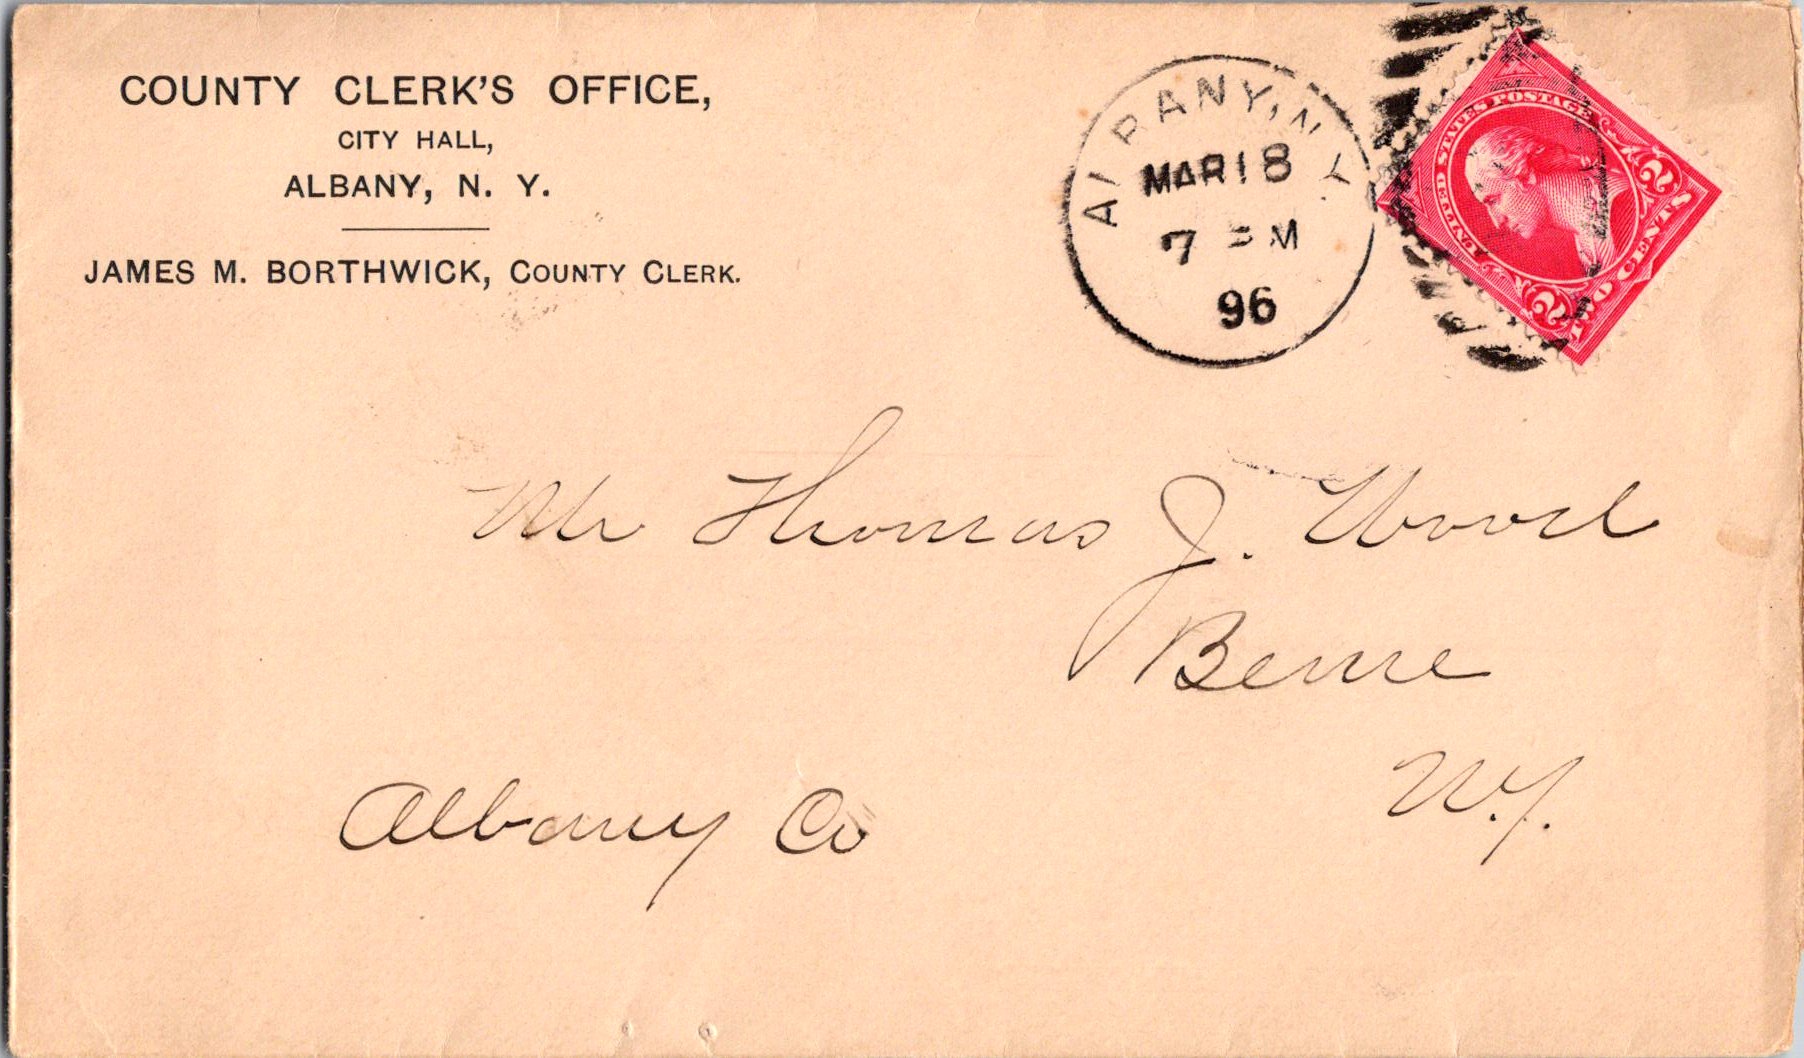 COUNTY CLERK'S OFFICE,
CITY HALL,
ALBANY, N. Y.
JAMES M. BORTHWICK, COUNTY CLERK.
ALBANY, N.Y.
MAR 18
7 PM
96
UNITED STATES POSTAGE
2 2
TWO CENTS
Mr Thomas J. Wood
Berne
N.Y.
Albany Co